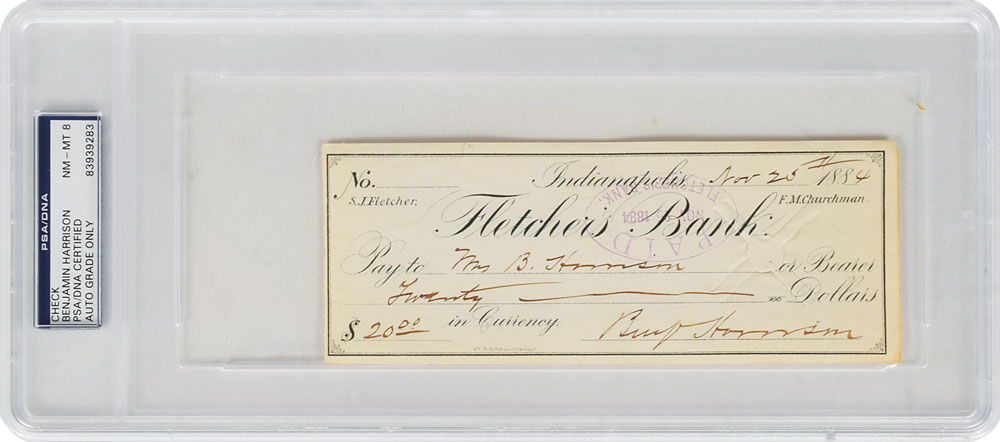 PSA/DNA
CHECK
BENJAMIN HARRISON
PSA/DNA CERTIFIED
AUTO GRADE ONLY
NM - MT 8
83939283
No. Indianapolis, Nov 25th 1884
S.J. Fletcher. F.M. Churchman.
Fletcher's Bank.
FLETCHER'S BANK.
1884
PAID
Pay to Mrs B. Harrison or Bearer
Twenty 100 Dollars
$ 20 00 in Currency. Benj Harrison